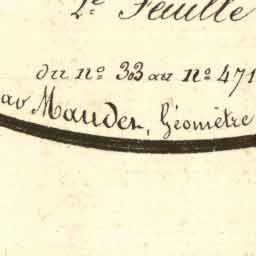 2.e Feuille
du n.o 33 au n.o 471
par Mauder, Géomètre